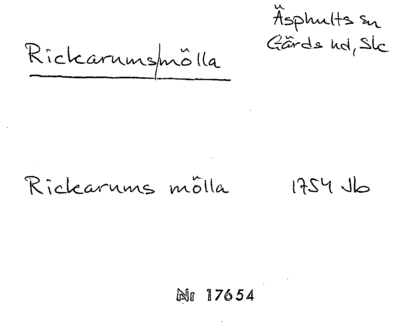 Äsphults sn
Gärds hd, Skc
Rickarums|mölla
Rickarums mölla 1754 Jb
Nr 17654